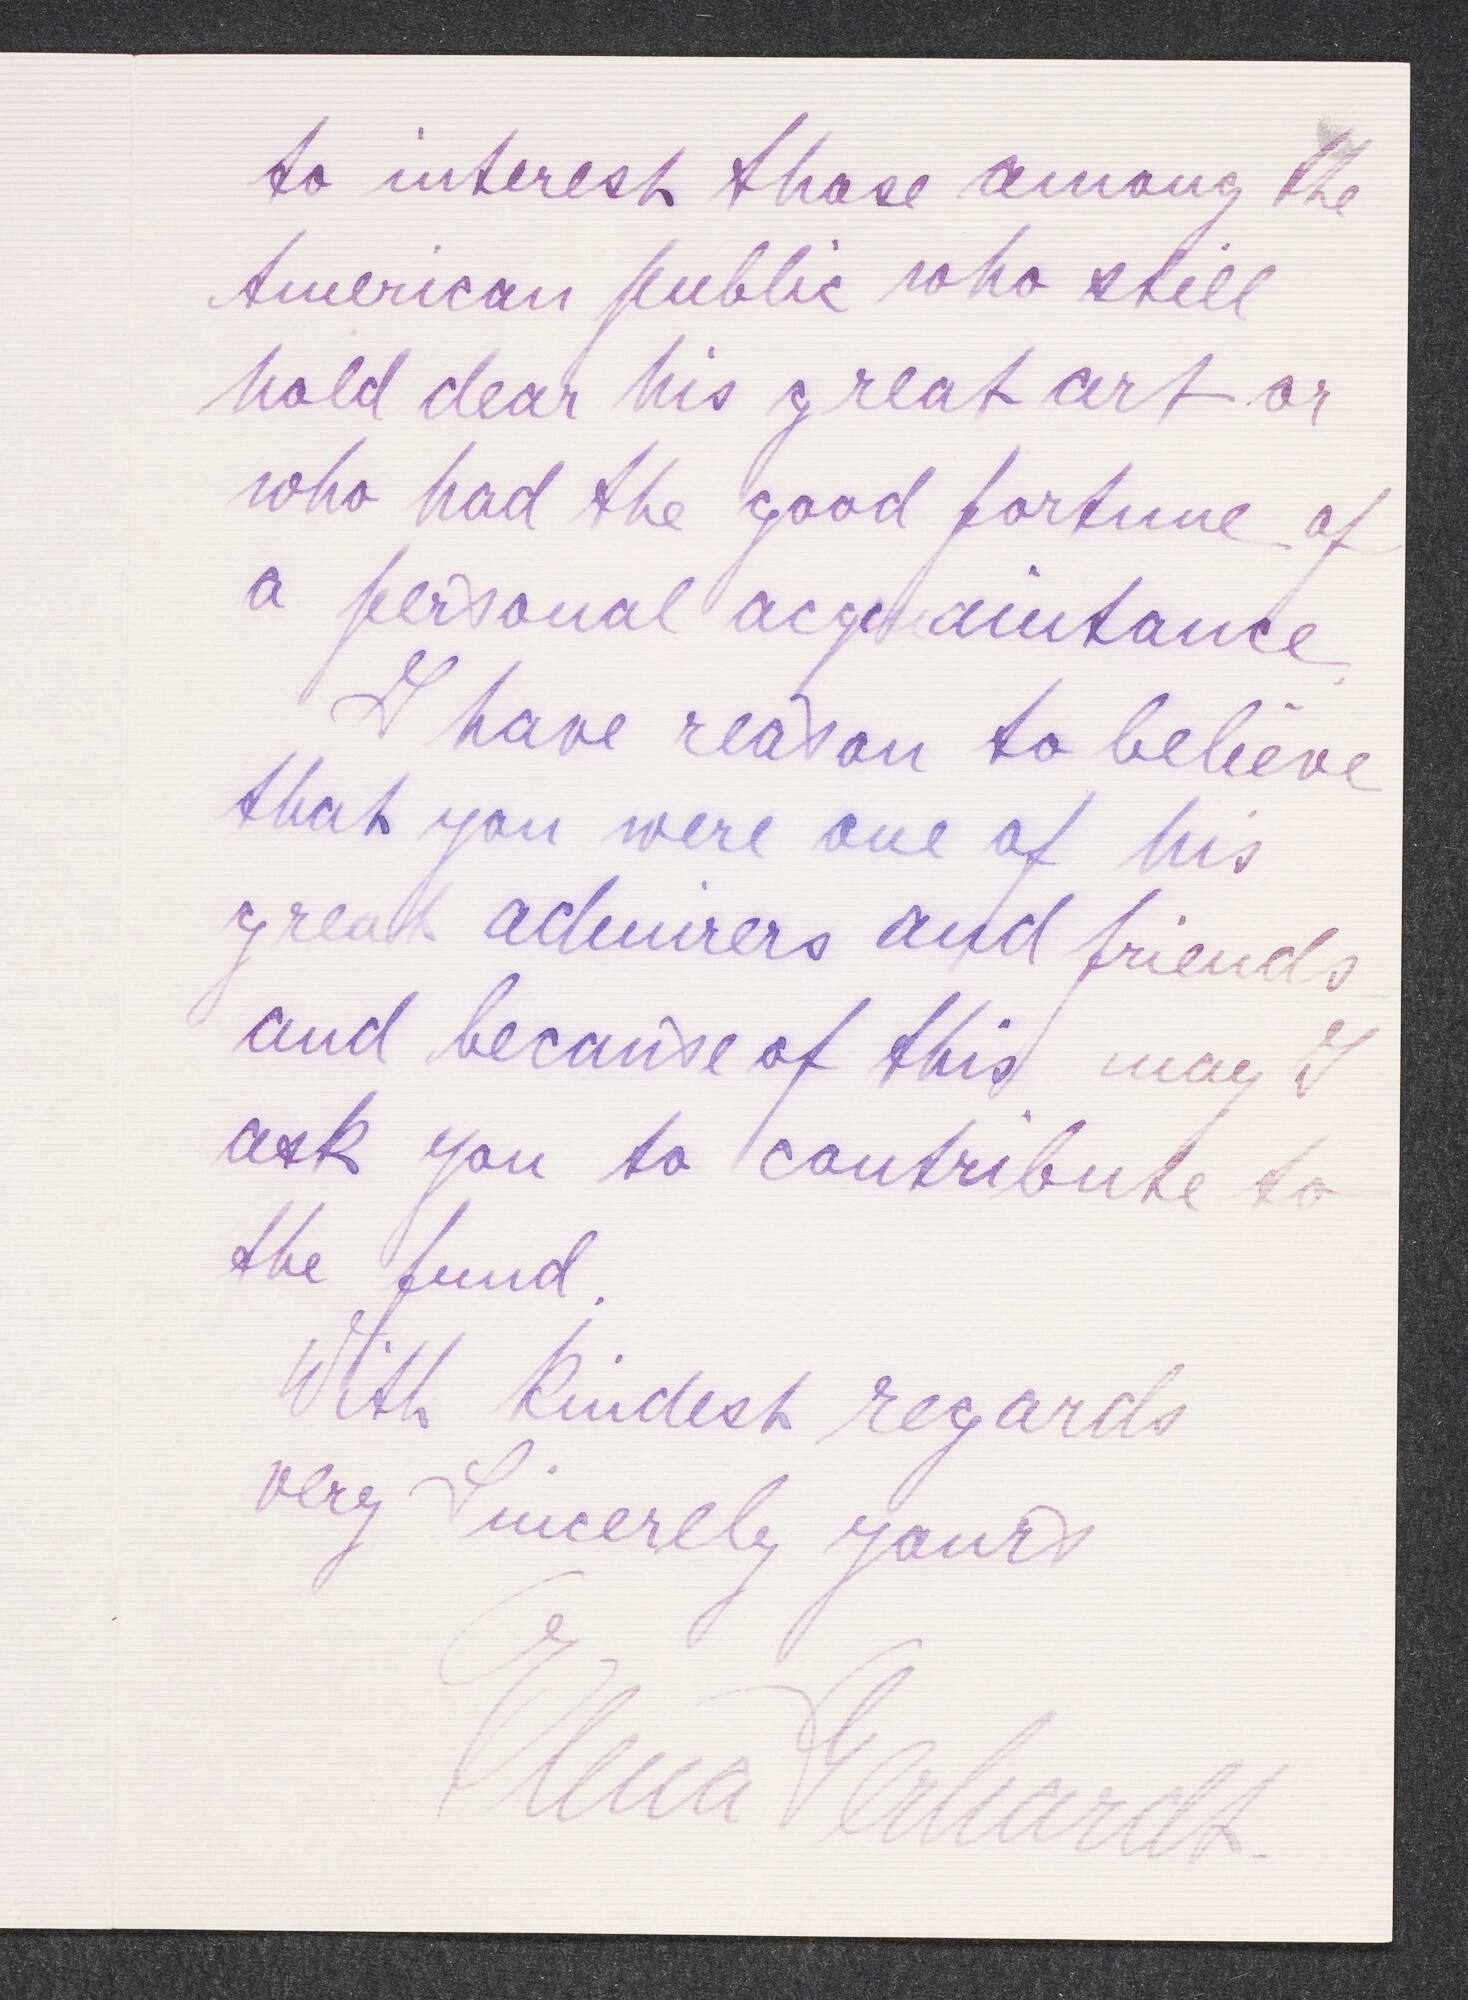 to interest those among the
American public who still
hold dear his great art or
who had the good fortune of
a personal acquaintance.
I have reason to believe
that you were one of his
great admirers and friends
and because of this may I
ask you to contribute to
the fund.
With kindest regards
very Sincerely yours
Elena Gerhardt.